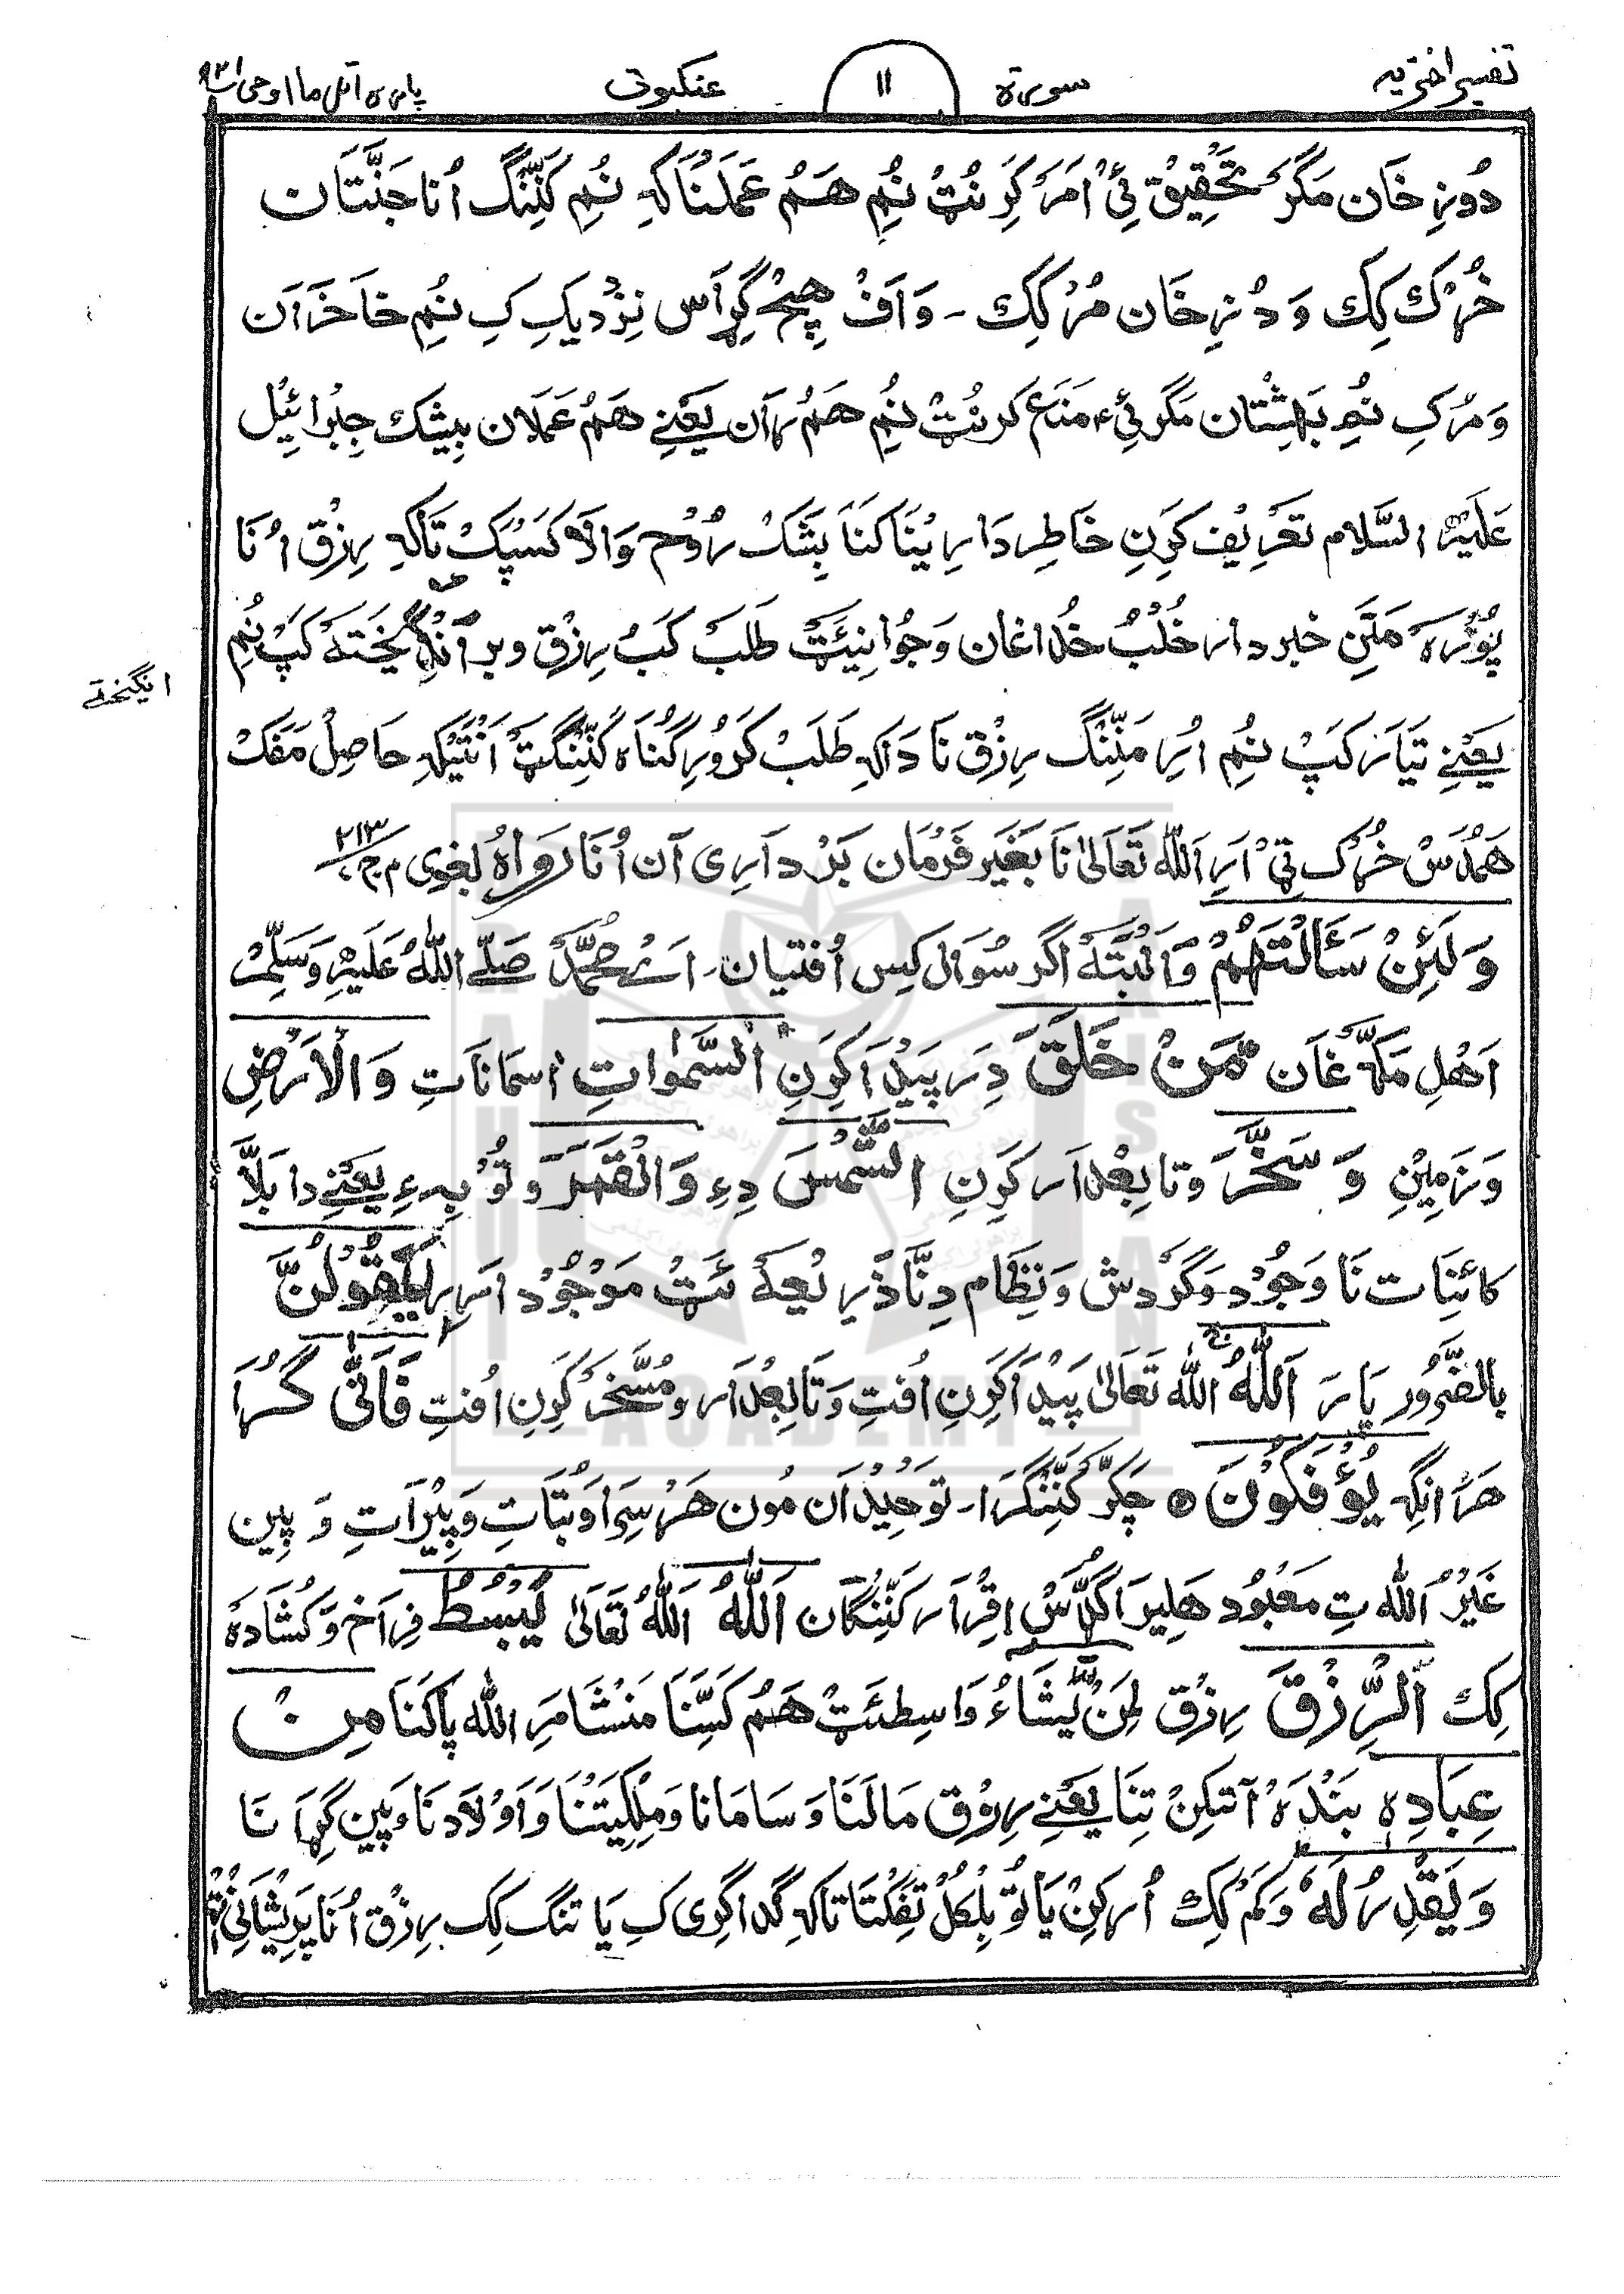 تفسیر اختریہ سورۃ ۱۱ عنکبوتی پارہ اتل ما اوحی ۲۱
دُونِخَان مَگَر تَحْقِیْق نِیْ اَمَر کَرِنُٹ نُمِ هَمُ عَمَلَنَا کِہ نُمِ کَنِّنگ اُنَا جَنَّتَان
خُڑک کِک وَ دُزِخَان مُر کِک ۔ وَاَفْ هِیچ گِڑَاس نِزْدِیک کِ نُمِ خَاخَرَان
وَ مُر کِ نُمِ بَہِشْتَان مَگَر نِیْ مَنَع کَرِنُٹ نُمِ هَمُ رَاَن یَعْنِے هَمُ عَمَلَان بِیشَک جِبْرَائِیْل
عَلَیْہِ السَّلَام تَعْرِیْف کَرِن خَاطِر دَارِ نِیْنَا کَنَا بِشَک رُوْح وَالَا کَسَپَک تَاکِہ رِزْق اُنَا
پُوْرَہ مَتَّنِ خبردار خُلْبُ خُدَاغَان وَ جُوَانِیْئَٹ طَلَبْ کَبُ رِزْق و بر انگیختہ کَپْ نُمِ
انگیختے
یَعْنِے تَیَار کَپْ نُمِ اُرِ مَنِّنگ رِزْق نَا دَاکہِ طَلَبْ کَرُورِ گُنَاہ کَنِّنگٹْ اَنْتَیْکِہ حَاصِلْ مَفَک
هَمُدَسْ خُڑک تِیْ اَرِ اَللہ تَعَالیٰ نَا بَغَیر فَرْمَان بَرْدَارِی آن اُنَا رَوَاہُ لبغوی م ج ۲۱۳
وَلَئِنْ سَأَلْتَهُمْ وَالْبَتَّہ اگر سُوَال کِیس اُفتیان ۔ اَے مُحَمَّدْ صَلَّے اللہُ عَلَیْہِ وَسَلَّمْ
اَهْلِ مَکَّہ غَان مَنْ خَلَقَ دِر پَیْدَا کَرِن السَّمٰوَاتِ اسمَانَاتِ وَالْاَرْضَ
وَ زَمِیْنِ وَ سَخَّرَ وَتَابِعْدَار کَرِنِ الشَّمْسَ دِءِ وَالْقَمَرَ وَ تُوْبِہءِ یَعْنِے دَا بَلَّا
کَائِنَات نَا وَجُوْد وَگَرْدِش وَنِظَام دِنَّا ذَرِیْعَہ ئَٹ مَوْجُوْد اَرِر لَیَقُوْلُنَّ
بالضَّرُوْر پَارَ اَللّٰہُ اللہ تَعَالیٰ پَیْدَا کَرِن اُفتِ وَتَابِعْدَار وَ مُسَخَّرْ کَرِن اُفتِ فَاَنّٰی گُڑَا
هَرَانگِہ یُؤْفَکُوْنَ ۝ چَکَّر کَنِّنگرَا ۔ تَوْحِیْدَان مُون هَرْسِرَ اَوبُتَاتِ وَ پِیْرَاتِ وَ پِین
غَیْرُ اللہ تِ مَعْبُوْد هَلِیر اِقْرَار کَنِّنگَان اَللّٰہُ اَللہُ تَعَالیٰ یَبْسُطُ فِرَاخ وَ کُشَادَہ
کِک الرِّزْقَ رِزْق لِمَنْ یَّشَاءُ وَاسِطَئَٹ هَمُ کَسَّنَا مَنْشَا مَرِ اللہ پَاکَنَا مِنْ
عِبَادِہٖ بَنْدَہْ آتیکن تِنَا یَعْنِے رِزْق مَالَنَا وَ سَامَانَا وَ مِلْکِیَتَنَا وَ اَوْلَادنَا وَ پِین گِڑَا نَا
وَ یَقْدِرُ لَہٗ وَ کَمْ کِک اُرکِنْ یَا تُو بِلْکُلْ تِفَکْتَا تَاکِہ گَدَاگِرِی کِ یَا تَنگ کِک رِزْق اُنَا پَرِیْشَانِی